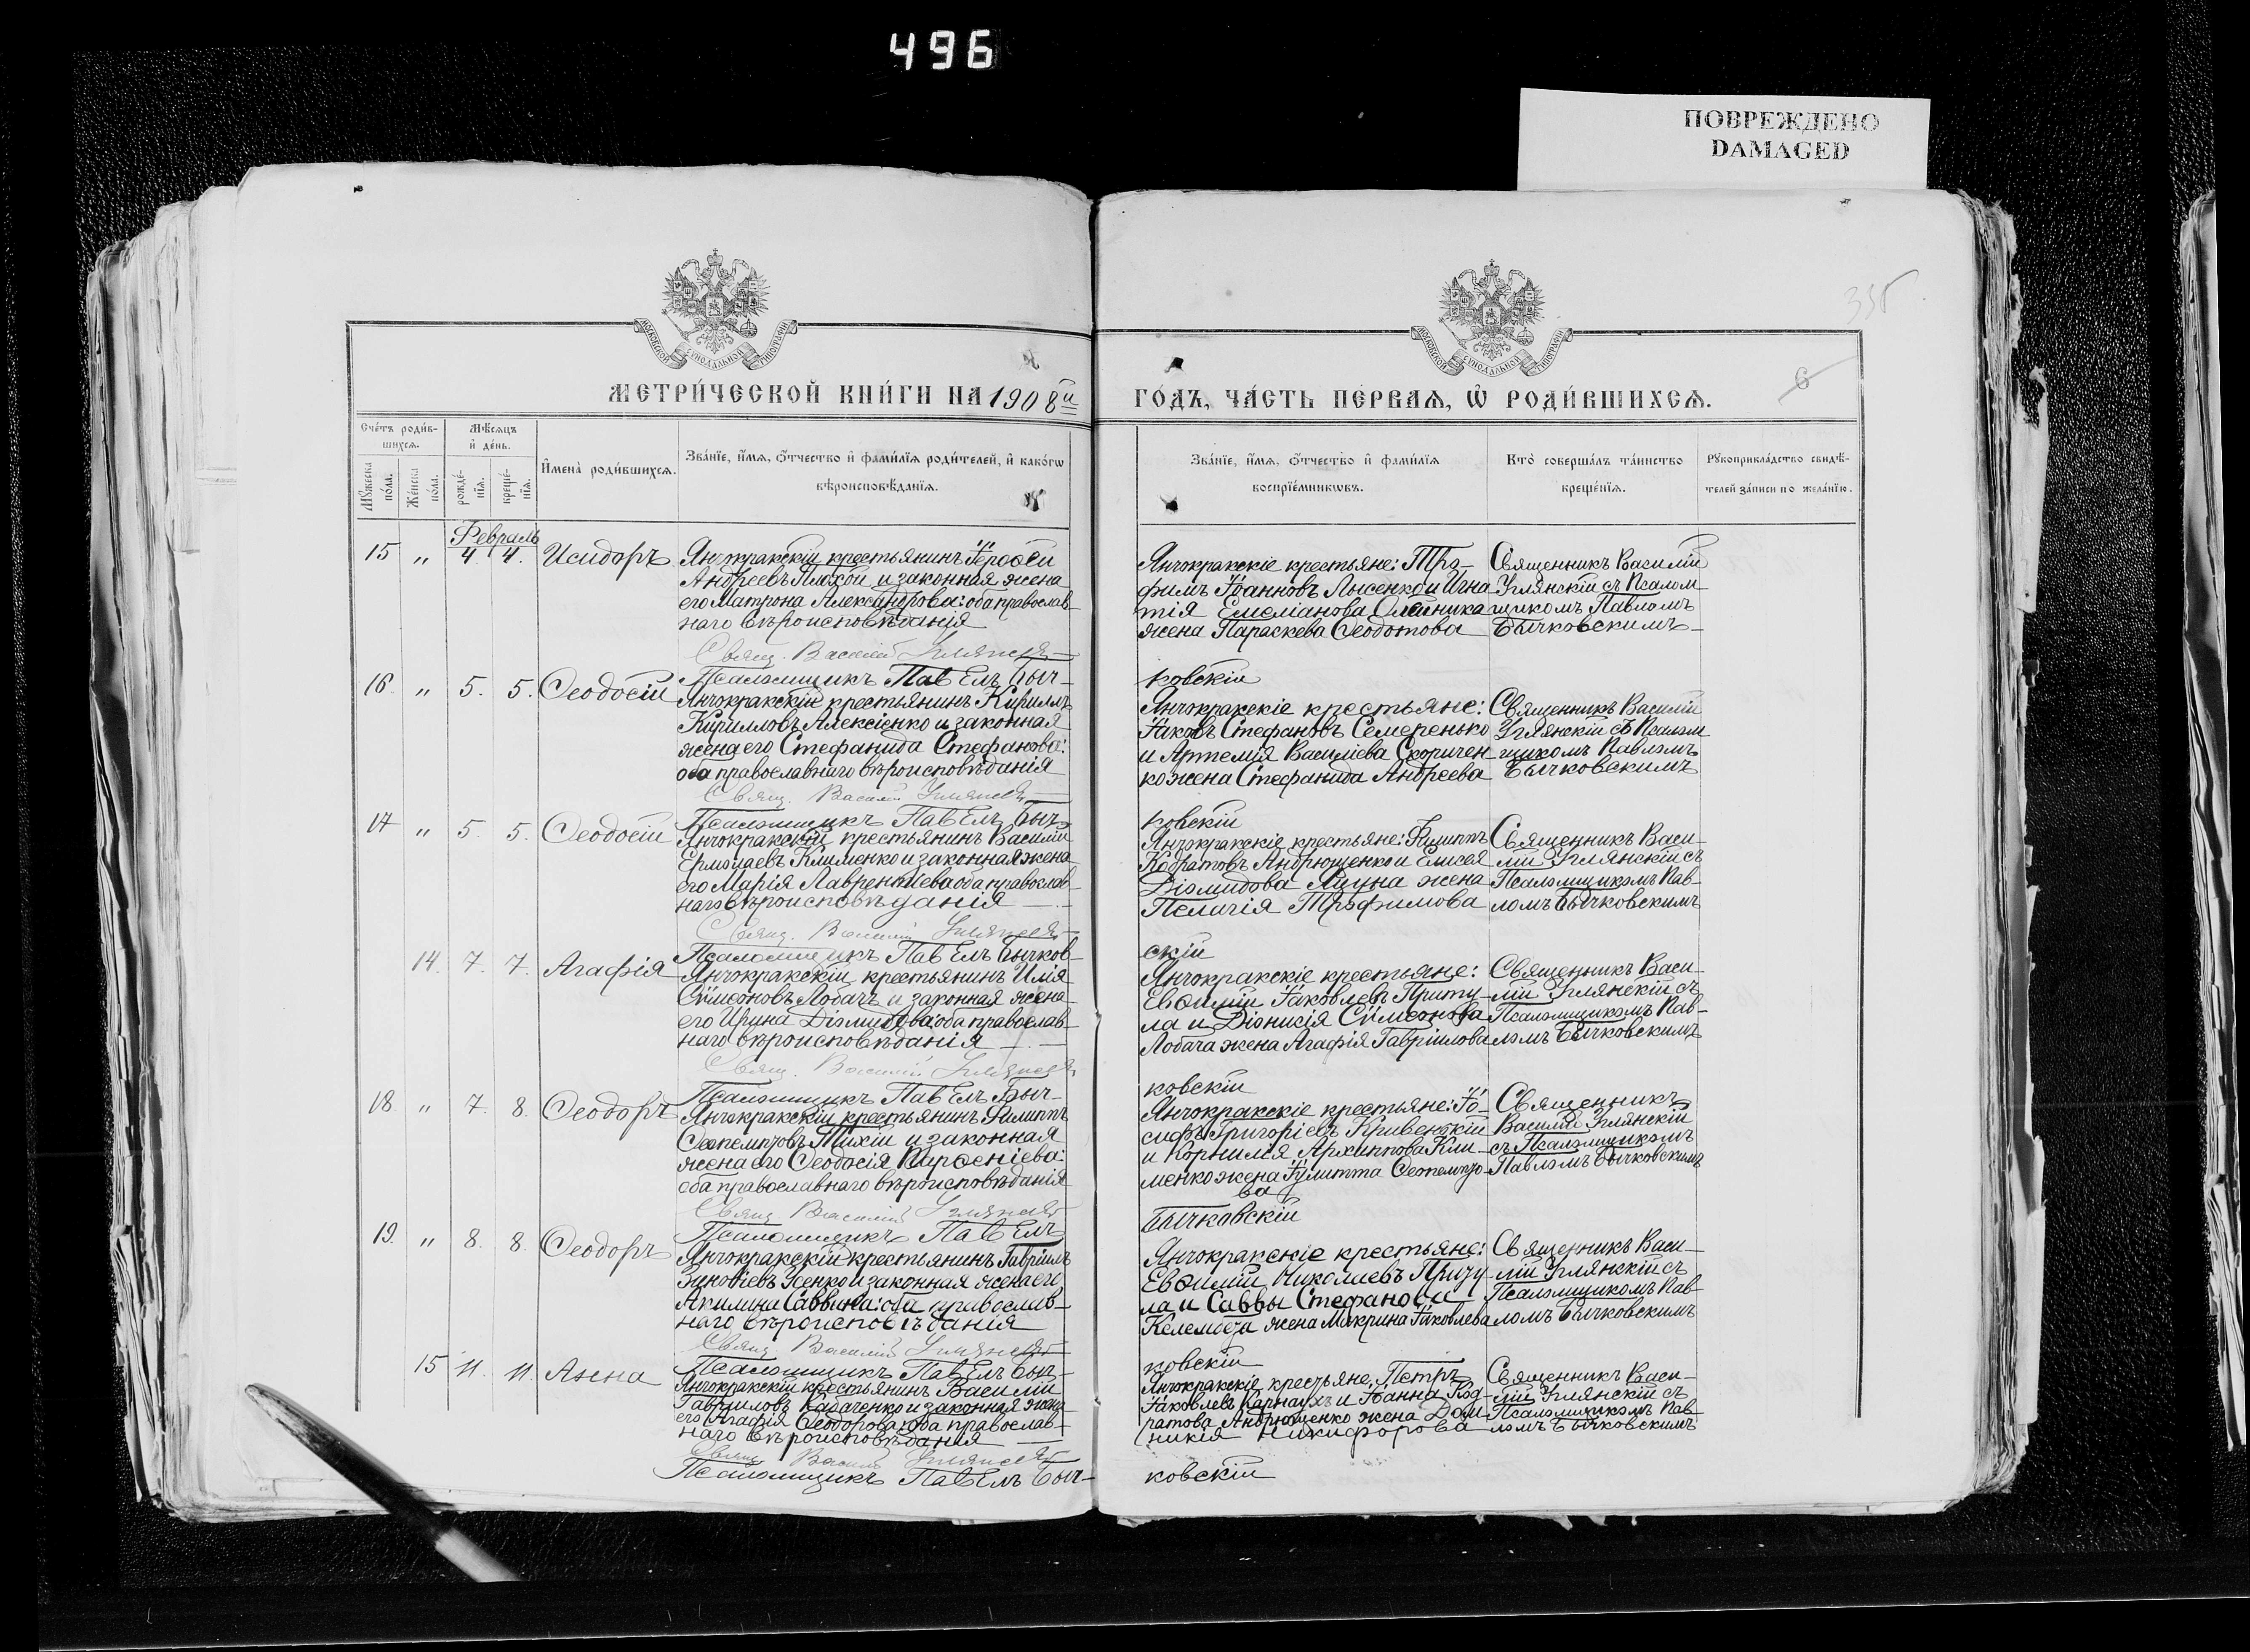 496
ПОВРЕЖДЕНО
DAMAGED
335
6
МОСКОВСКОЙ СѴНОДАЛЬНОЙ ТИПОГРАФІИ
МОСКОВСКОЙ СѴНОДАЛЬНОЙ ТИПОГРАФІИ
МЕТРИ́ЧЕСКОЙ КНИ́ГИ НА 1908й
ГО́ДЪ, ЧА́СТЬ ПЕ́РВАѦ, Ѡ҆ РОДИ́ВШИХСѦ.
Сче́тъ роди́вшихсѧ.
Мѣ́сѧцъ и҆ де́нь.
И҆мена̀ роди́вшихсѧ.
Зва́нїе, и҆́мѧ, ѻ҆́тчество и҆ фами́лїѧ роди́телей, и҆ како́гѡ
вѣроисповѣ́данїѧ.
Мꙋ́жеска по́ла.
Же́нска по́ла.
рожде́нїѧ.
креще́нїѧ.
Зва́нїе, и҆́мѧ, ѻ҆́тчество и҆ фами́лїѧ
воспрїе́мникѡвъ.
Кто̀ соверша́лъ та́инство
креще́нїѧ.
Рꙋкоприкла́дство свидѣ́-
телей за́писи по жела́нїю.
Февраль
15 " 4. 4. Исидоръ
Янчокракскій крестьянинъ Іероѳей
Андреевъ Плохой и законная жена
его Матрона Александрова: оба православ-
наго вѣроисповѣданія
Свящ. Василій Углянскій
Псаломщикъ Павелъ Быч-
ковскій
Янчокракскіе крестьяне: Тро-
фимъ Іоанновъ Лысенко и Игна
тія Емеліанова Олейника
жена Параскева Ѳеодотова
Священникъ Василій
Углянскій съ Псалом
щикомъ Павломъ
Бычковскимъ
16. " 5. 5. Ѳеодосій
Янчокракскій крестьянинъ Кириллъ
Кирилловъ Алексіенко и законная
жена его Стефанида Стефанова:
оба православнаго вѣроисповѣданія
Свящ. Василій Углянскій
Псаломщикъ Павелъ Быч-
ковскій
Янчокракскіе крестьяне:
Іаковъ Стефановъ Семеренько
и Артемія Василіева Скоричен-
ко жена Стефанида Андреева
Священникъ Василій
Углянскій съ Псалом
щикомъ Павломъ
Бычковскимъ
17 " 5. 5. Ѳеодосій
Янчокракскій крестьянинъ Василій
Ермолаевъ Клименко и законная жена
его Марія Лаврентіева оба православ-
наго вѣроисповѣданія
Свящ. Василій Углянскій
Псаломщикъ Павелъ Бычков-
скій
Янчокракскіе крестьяне: Филиппъ
Кодратовъ Андрющенко и Елисея
Діомидова Яцуна жена
Пелагія Трофимова
Священникъ Васи-
лій Углянскій съ
Псаломщикомъ Пав-
ломъ Бычковскимъ
14. 7. 7. Агафія
Янчокракскій крестьянинъ Илія
Сѵмеоновъ Лобачъ и законная жена
его Ирина Діомидова: оба православ-
наго вѣроисповѣданія
Свящ. Василій Углянскій
Псаломщикъ Павелъ Быч-
ковскій
Янчокракскіе крестьяне:
Евѳимій Іаковлевъ Приту-
ла и Діонисія Сѵмеонова
Лобача жена Агафія Гавріилова
Священникъ Васи-
лій Углянскій съ
Псаломщикомъ Пав-
ломъ Бычковскимъ
18. " 7. 8. Ѳеодоръ
Янчокракскій крестьянинъ Филиппъ
Ѳеопемптовъ Тихій и законная
жена его Ѳеодосія Парѳеніева:
оба православнаго вѣроисповѣданія
Свящ. Василій Углянскій
Псаломщикъ Павелъ
Бычковскій
Янчокракскіе крестьяне: Іо-
сифъ Григоріевъ Кривенькій
и Корнилія Архиппова Кли-
менко жена Іулитта Ѳеопемпто-
ва
Священникъ
Василій Углянскій
съ Псаломщикомъ
Павломъ Бычковскимъ
19. " 8. 8. Ѳеодоръ
Янчокракскій крестьянинъ Гавріилъ
Зиновіевъ Усенко и законная жена его
Акилина Саввина: оба православ-
наго вѣроисповѣданія
Свящ. Василій Углянскій
Псаломщикъ Павелъ Быч-
ковскій
Янчокракскіе крестьяне:
Евѳимій Николаевъ Приту-
ла и Саввы Стефанова
жена Макрина Іаковлева
Священникъ Васи-
лій Углянскій съ
Псаломщикомъ Пав-
ломъ Бычковскимъ
15 11. 11. Анна
Янчокракскій крестьянинъ Василій
Гавріиловъ Кабаченко и законная жена
его Агафія Ѳеодорова: оба православ-
наго вѣроисповѣданія
Свящ. Василій Углянскій
Псаломщикъ Павелъ Быч-
ковскій
Янчокракскіе крестьяне, Петръ
Іаковлевъ Карнаухъ и Іоанна Код-
ратова Андрющенко жена Дом-
никія Никифорова
Священникъ Васи-
лій Углянскій съ
Псаломщикомъ Пав-
ломъ Бычковскимъ